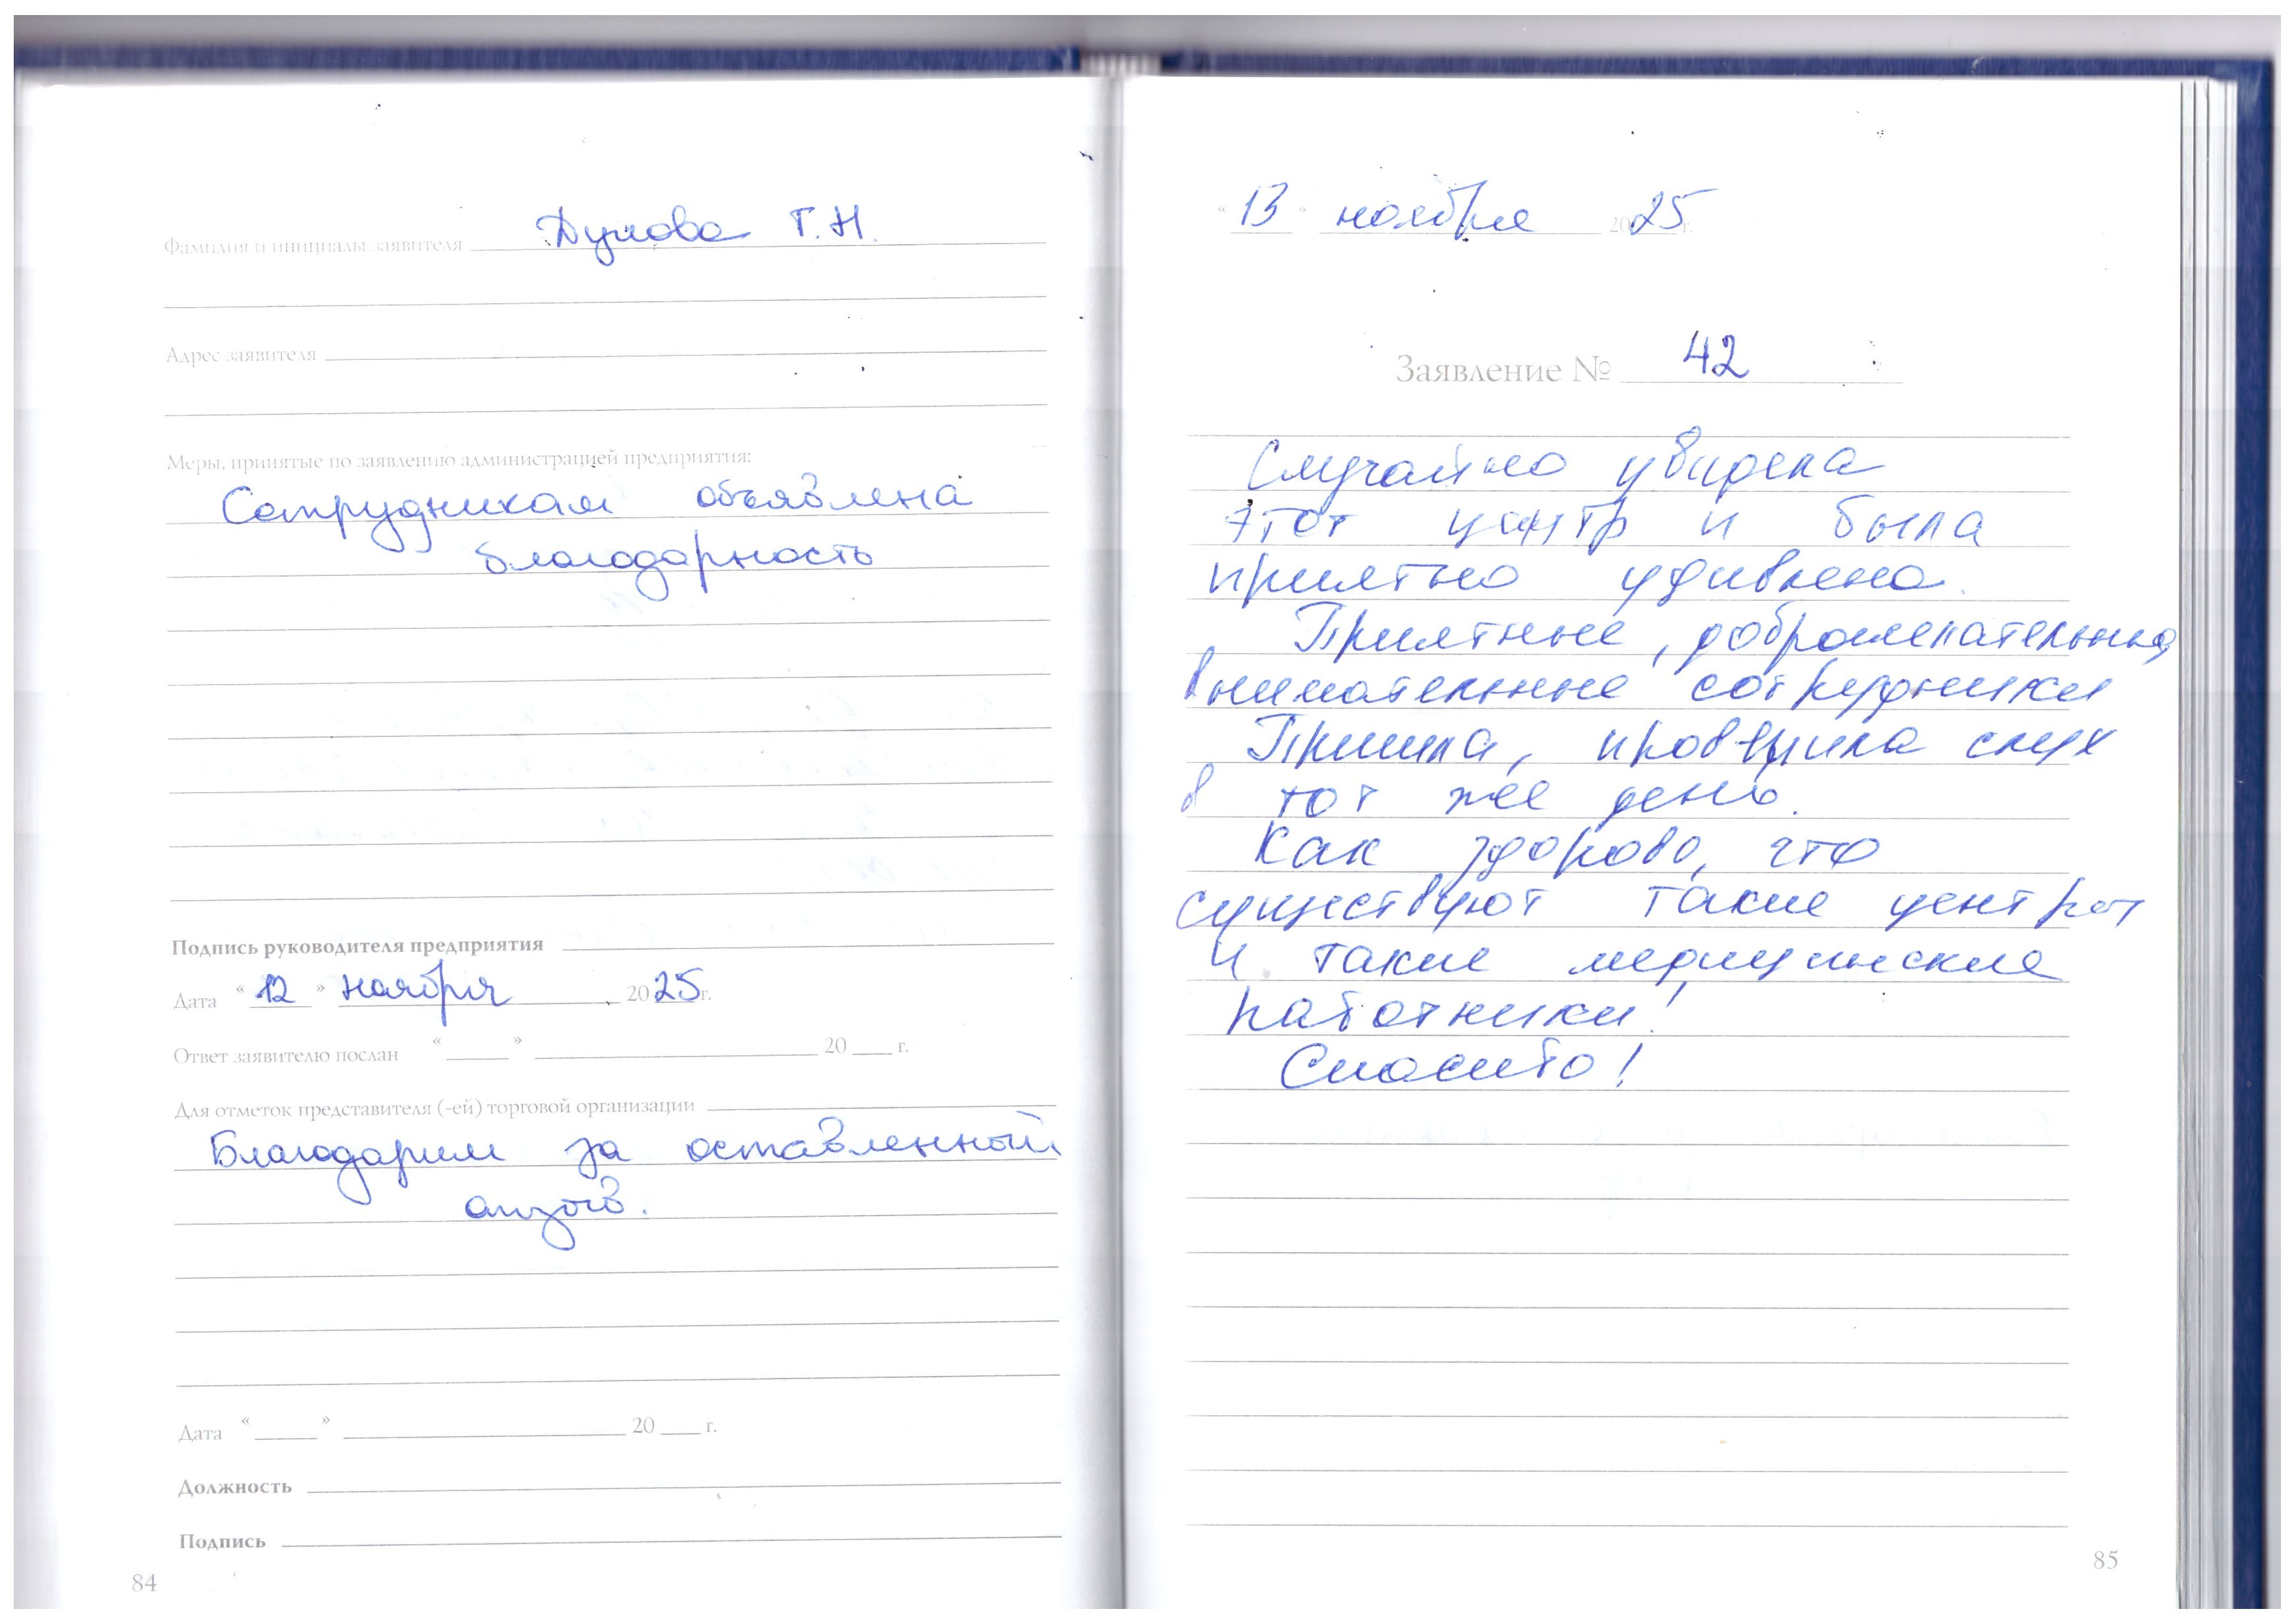 Фамилия и инициалы заявителя Г.Н.
Адрес заявителя
Меры, принятые по заявлению администрацией предприятия:
Сотрудникам объявлена
благодарность
Подпись руководителя предприятия
Дата "12" ноября 2025г.
Ответ заявителю послан "____" ____ 20 ___ г.
Для отметок представителя (-ей) торговой организации
Благодарим за оставленный
отзыв.
Дата "____" ____ 20 ___ г.
Должность
Подпись
84
"13" ноября 2025г.
Заявление № 42
Случайно увидела
этот центр и была
приятно удивлена.
Приятные, доброжелательные,
внимательные сотрудники
Пришла, проверила слух
в тот же день.
Как здорово, что
существуют такие центры
и такие медицинские
работники!
Спасибо!
85